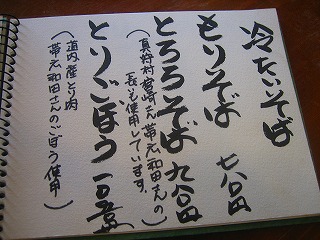 冷たいそば
もりそば 七八〇円
とろろそば 九八〇円
(真狩村宮崎さん、帯広和田さんの
長いも使用しています。)
とりごぼう
(道内産とり肉
帯広和田さんのごぼう使用)